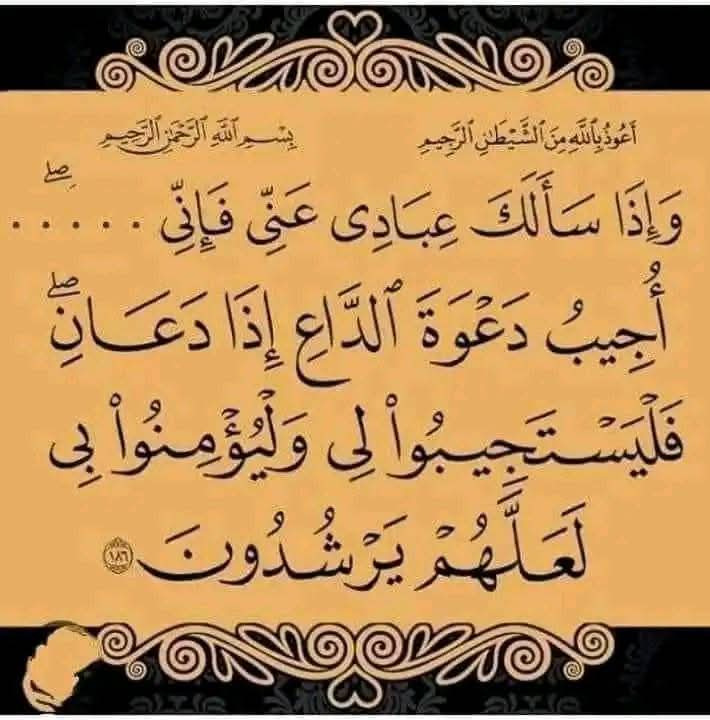 أَعُوذُ بِاللَّهِ مِنَ الشَّيْطَانِ الرَّجِيمِ بِسْمِ اللَّهِ الرَّحْمَٰنِ الرَّحِيمِ
وَإِذَا سَأَلَكَ عِبَادِى عَنِّى فَإِنِّى ۖ . . . . .
أُجِيبُ دَعْوَةَ ٱلدَّاعِ إِذَا دَعَانِ ۖ
فَلْيَسْتَجِيبُوا۟ لِى وَلْيُؤْمِنُوا۟ بِى
لَعَلَّهُمْ يَرْشُدُونَ ١٨٦